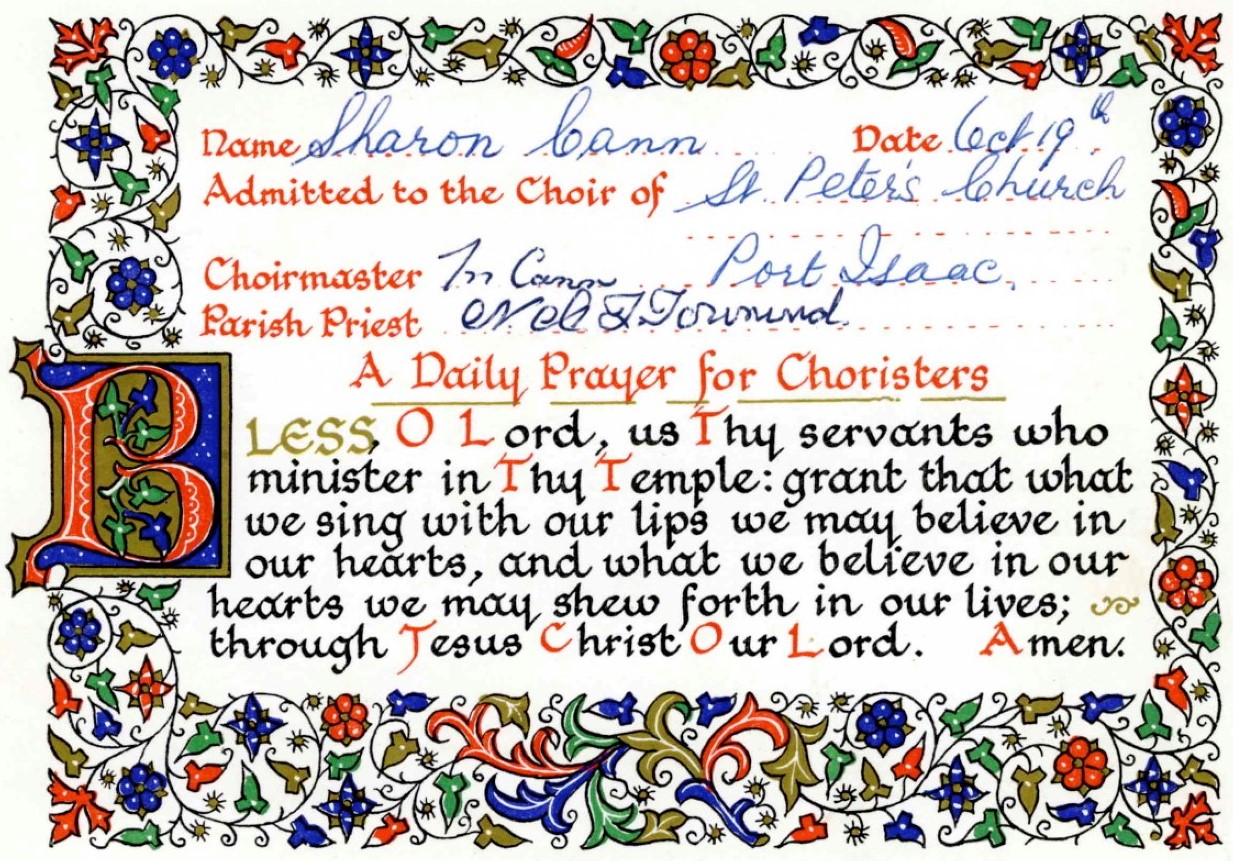 Name Sharon Cann Date Oct 19th
Admitted to the Choir of St. Peter's Church
Port Isaac.
Choirmaster M Cann
Parish Priest
A Daily Prayer for Choristers
BLESS, O Lord, us Thy servants who
minister in Thy Temple: grant that what
we sing with our lips we may believe in
our hearts, and what we believe in our
hearts we may shew forth in our lives;
through Jesus Christ Our Lord. Amen.